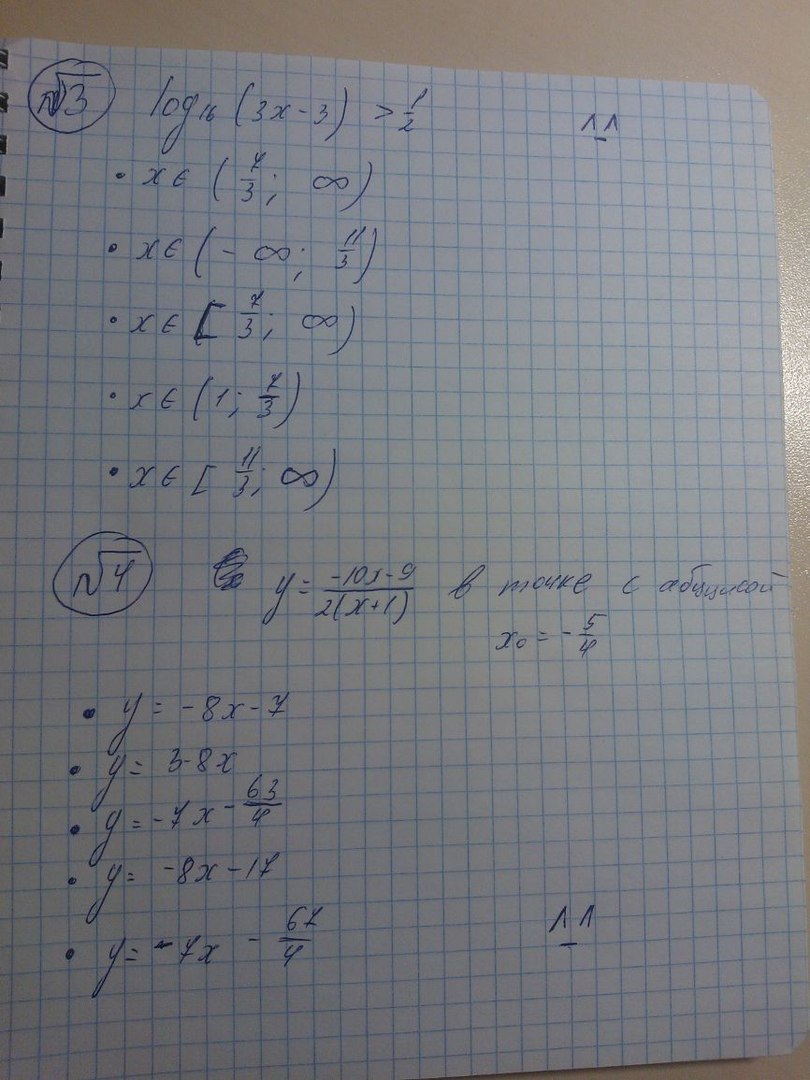 №3 log₁₆ (3x-3) > 1/2
• x ∈ (7/3; ∞)
• x ∈ (-∞; 11/3)
• x ∈ [7/3; ∞)
• x ∈ (1; 7/3)
• x ∈ [11/3; ∞)
№4 y = (-10x-9)/(2(x+1)) в точке с абциссой
x₀ = -5/4
• y = -8x-7
• y = 3-8x
• y = -7x - 63/4
• y = -8x-17
• y = -7x - 67/4